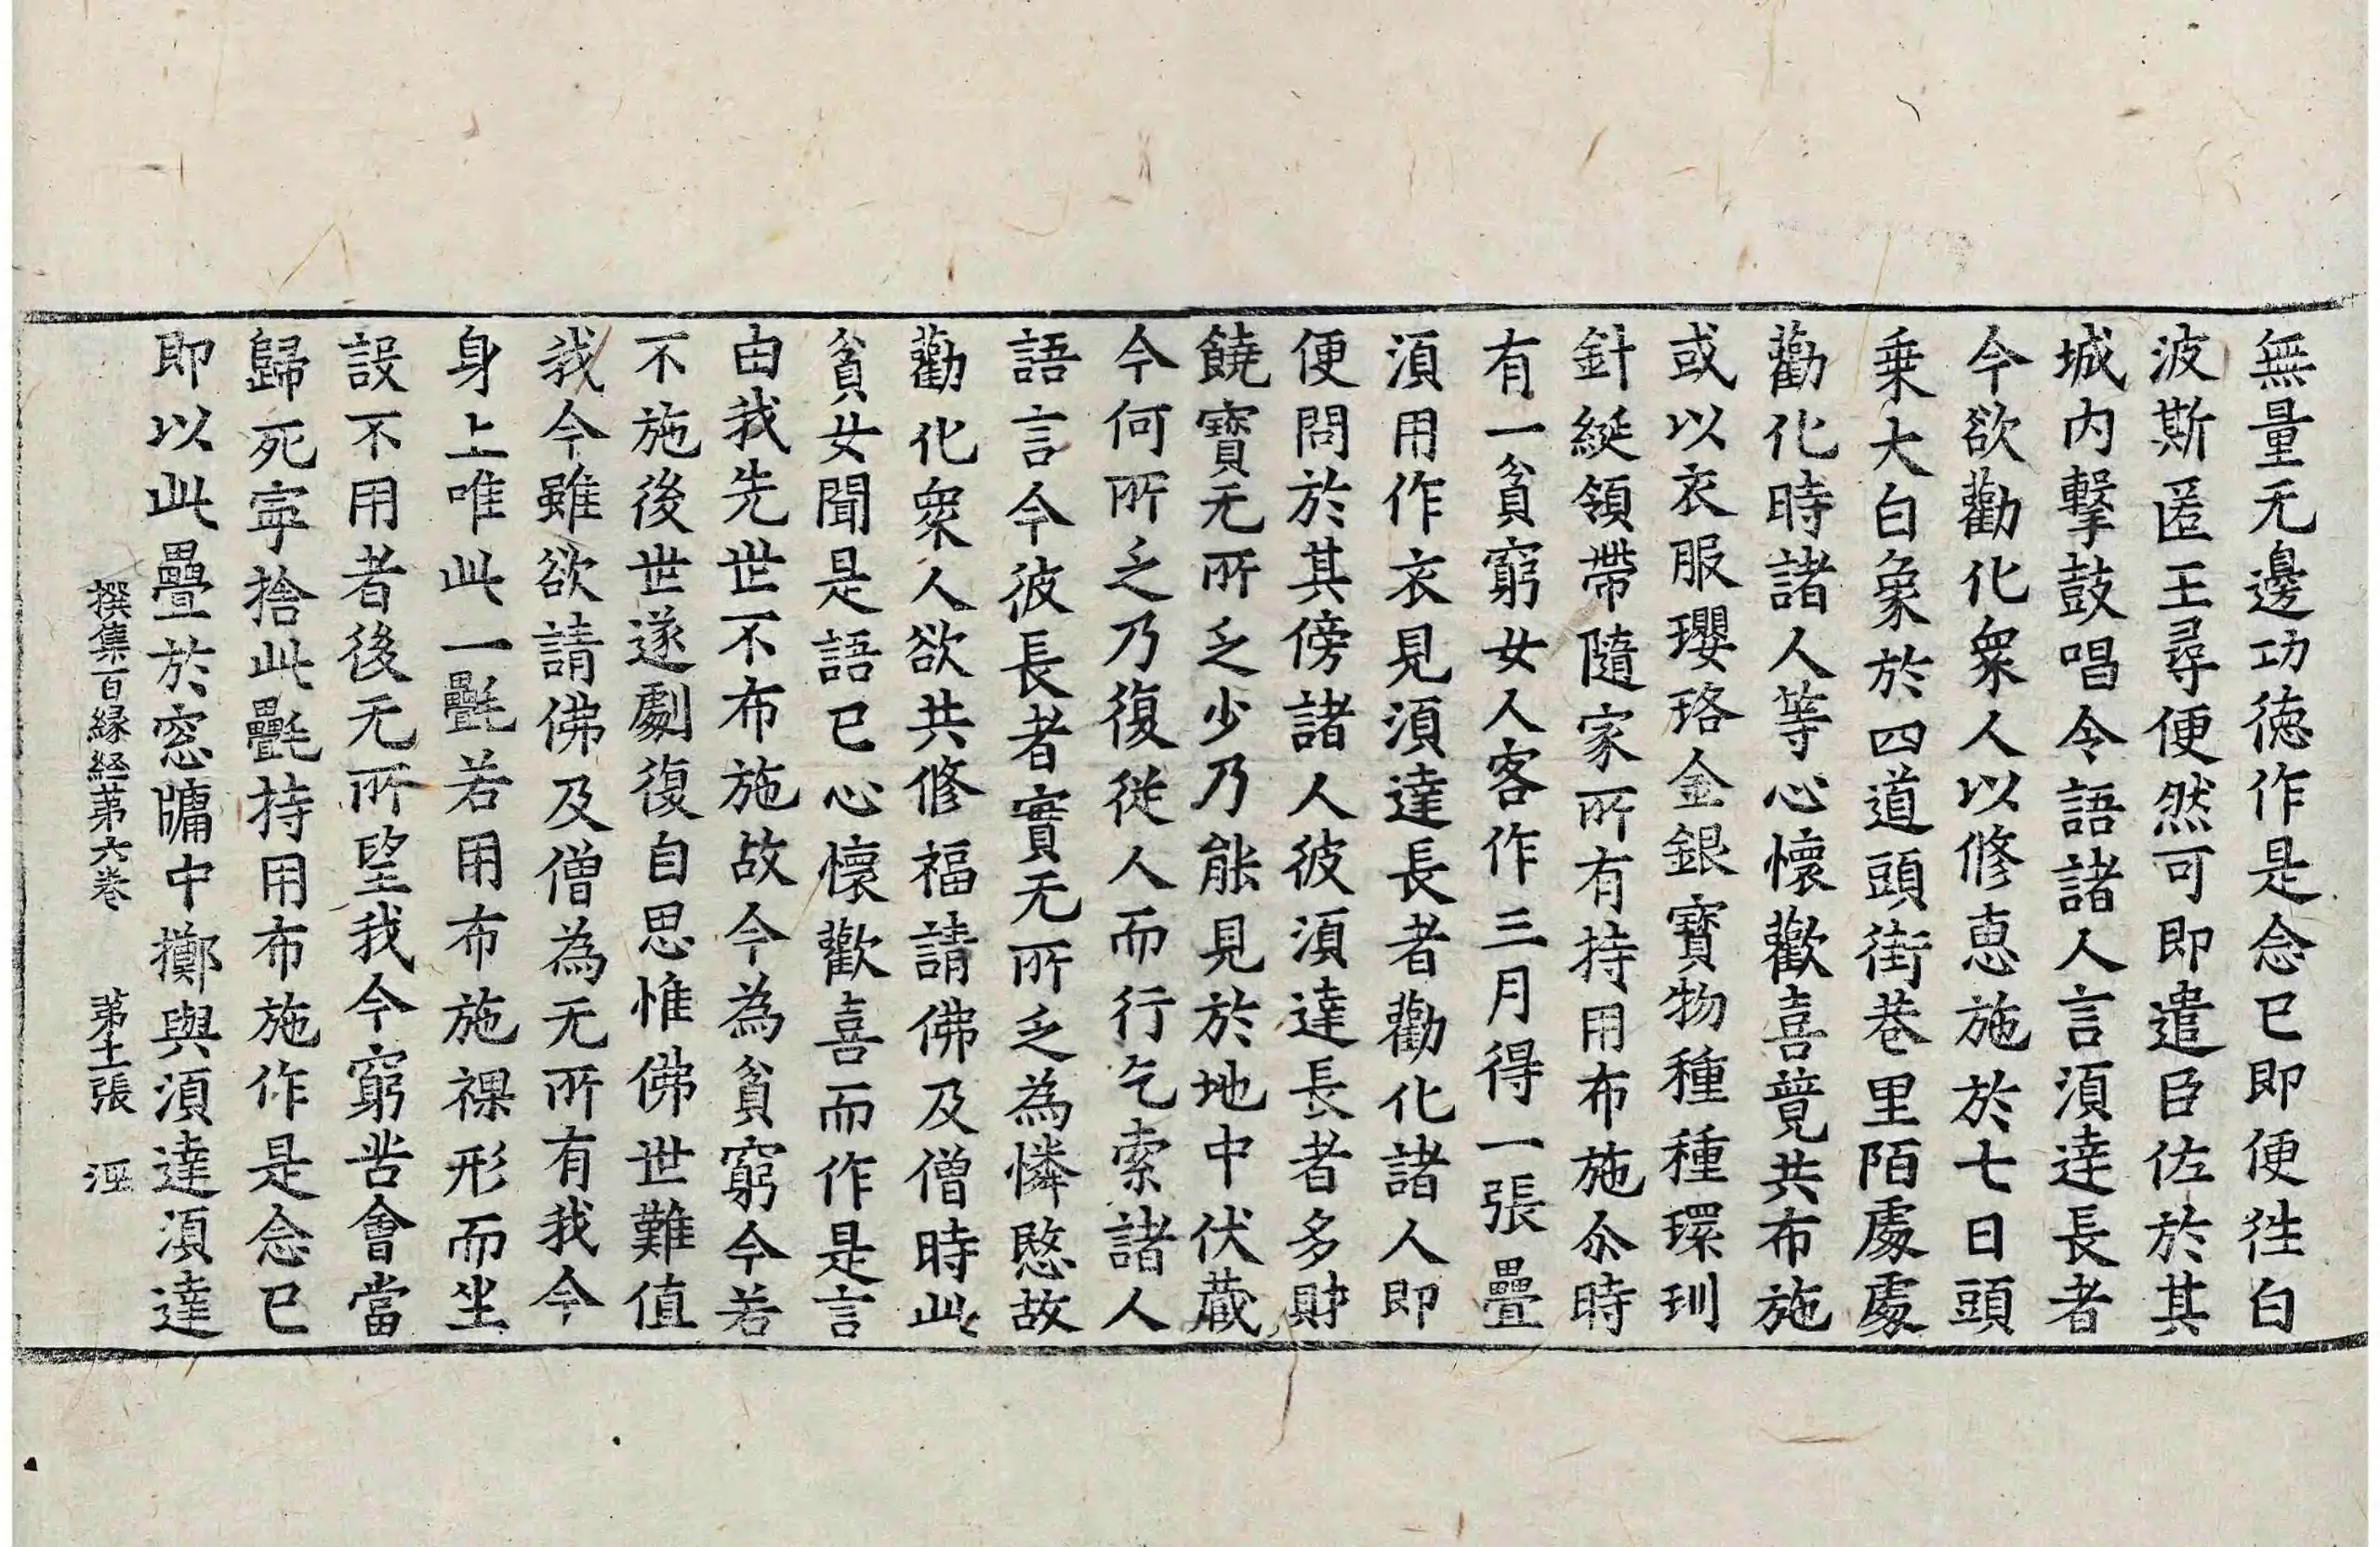 無量无邊功徳作是念已即便徃白
波斯匿王尋便然可即遣臣佐於其
城内擊鼓唱令語諸人言湏達長者
今欲勸化衆人以修恵施於七日頭
乗大白象於四道頭街巷里陌處處
勸化時諸人等心懷歡喜竟共布施
或以衣服瓔珞金銀寶物種種環玔
針綖領帶隨家所有持用布施尒時
有一貧窮女人客作三月得一張疊
湏用作衣見湏達長者勸化諸人即
便問於其傍諸人彼湏達長者多財
饒寶无所乏少乃能見於地中伏蔵
今何所乏乃復從人而行乞索諸人
語言今彼長者實无所乏為憐愍故
勸化衆人欲共修福請佛及僧時此
貧女聞是語已心懷歡喜而作是言
由我先世不布施故今為貧窮今若
不施後世遂劇復自思惟佛世難值
我今雖欲請佛及僧為无所有我今
身上唯此一㲲若用布施裸形而坐
設不用者後无所望我今窮苦會當
歸死寜捨此㲲持用布施作是念已
即以此疊於窓牗中擲與湏達湏達
撰集百縁経苐六巻 苐十一張 洭